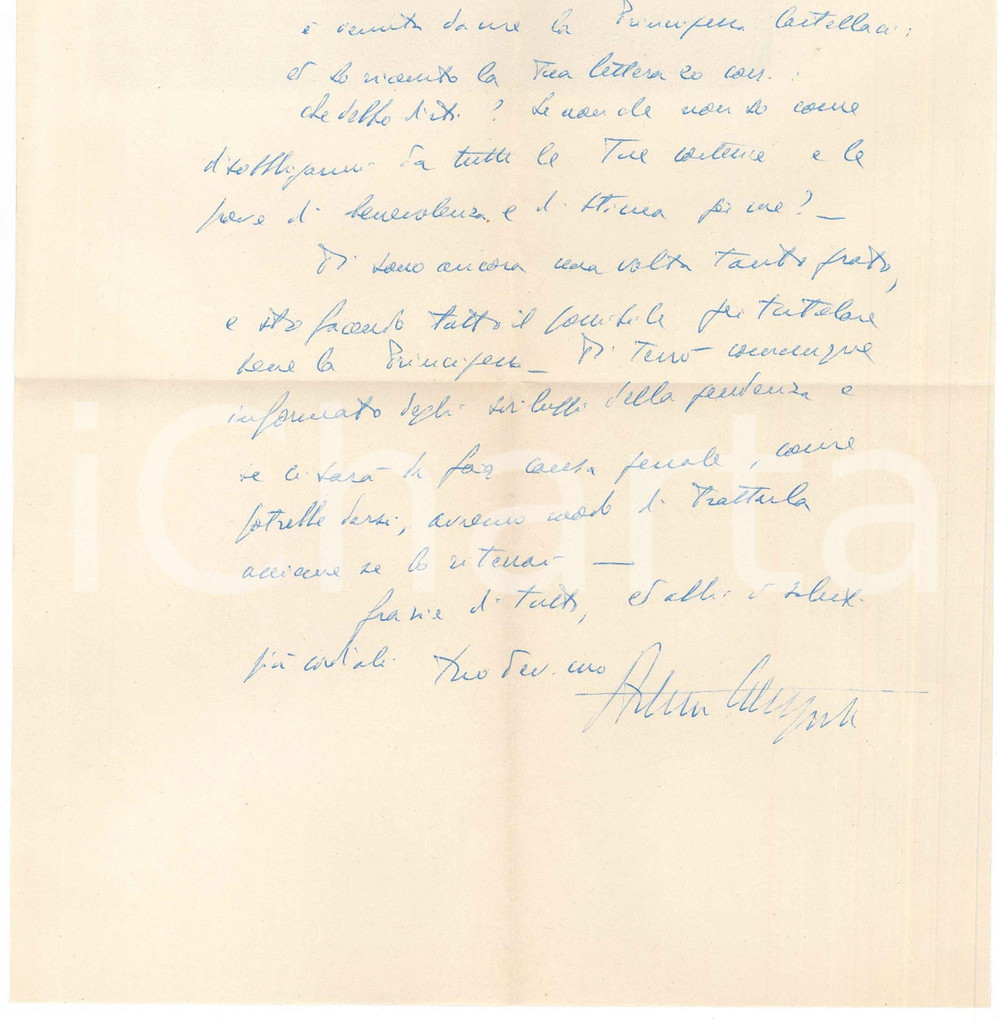 è venuta da me la Principessa Castellaci:
ed ho ricevuto la Tua lettera 20 corr.:
che debbo dirti? Se non che non so come
disobbligarmi da tutte le Tue cortesie e le
prove di benevolenza e di stima per me? _
Ti sono ancora una volta tanto grato,
e sto facendo tutto il possibile per tutelare
bene la Principessa _ Ti terrò comunque
informato degli sviluppi della pendenza e
se ci sarà da far causa penale, come
potrebbe darsi, avremo modo di trattarla
assieme se lo riterrai —
Grazie di tutto, ed abbi i saluti
più cordiali. Tuo dev.mo
iCharta